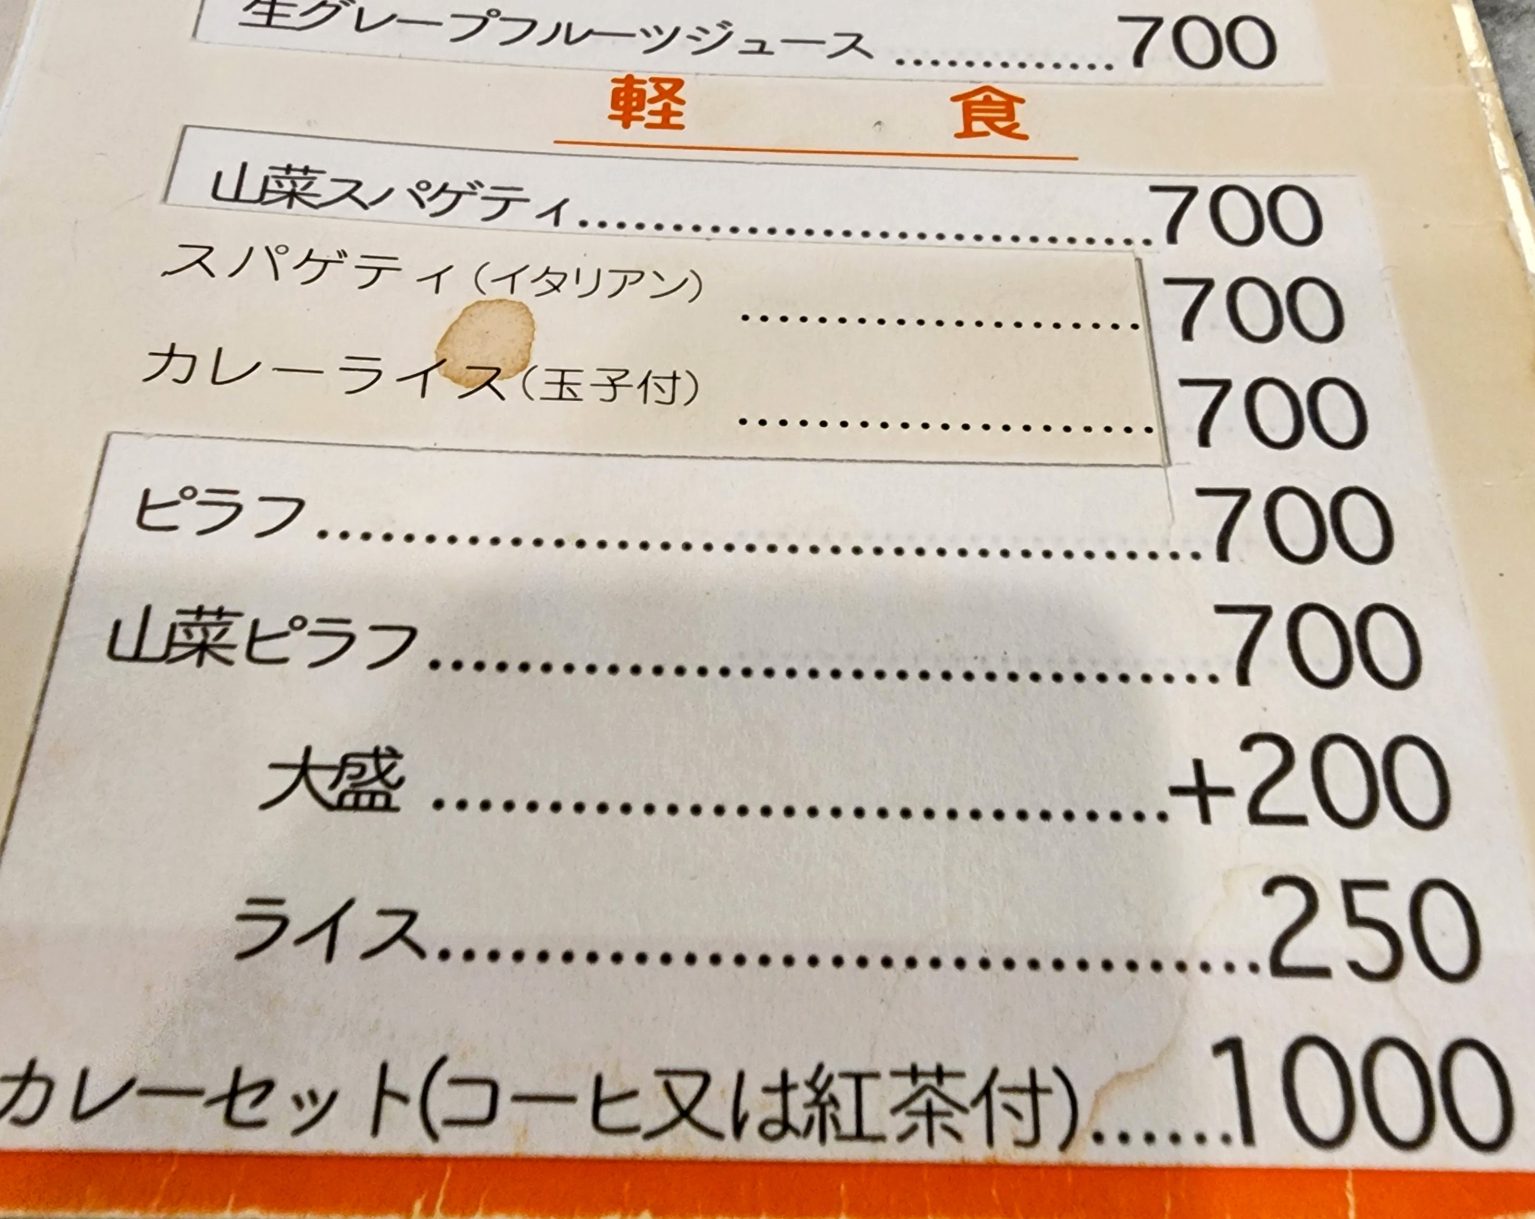 生グレープフルーツジュース .............700
軽 食
山菜スパゲティ..............................700
スパゲティ(イタリアン) .....................700
カレーライス(玉子付) ......................700
ピラフ..........................................700
山菜ピラフ....................................700
大盛 ................................+200
ライス..................................250
カレーセット(コーヒ又は紅茶付)......1000